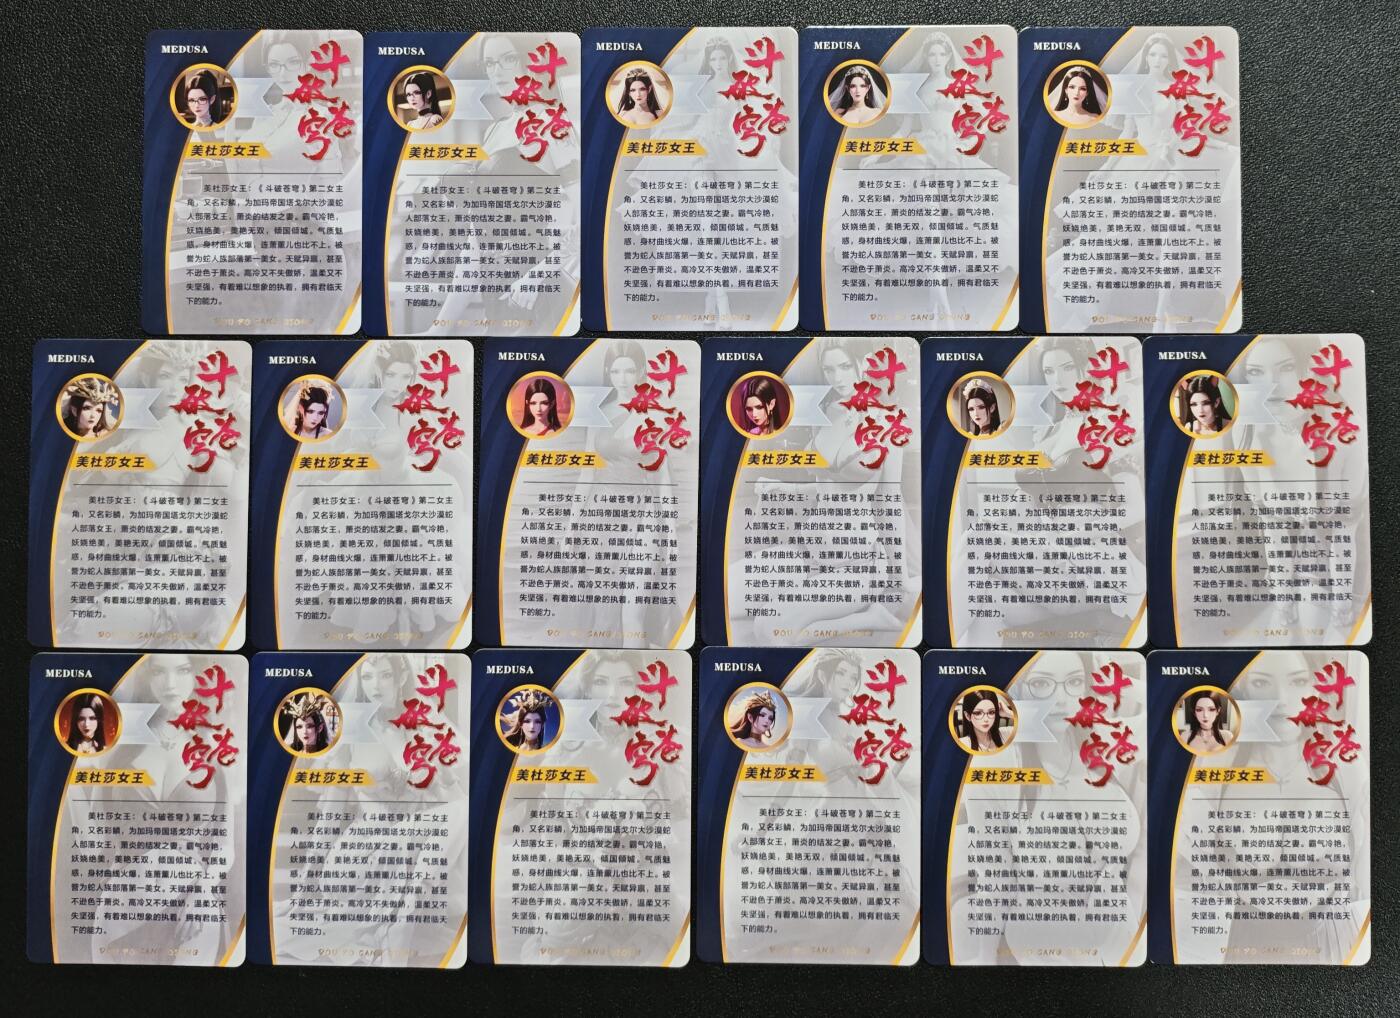 MEDUSA
斗破苍穹
美杜莎女王
美杜莎女王：《斗破苍穹》第二女主
角，又名彩鳞，为加玛帝国塔戈尔大沙漠蛇
人部落女王，萧炎的结发之妻。霸气冷艳，
妖娆绝美，美艳无双，倾国倾城。气质魅
惑，身材曲线火爆，连萧薰儿也比不上。被
誉为蛇人族部落第一美女。天赋异禀，甚至
不逊色于萧炎。高冷又不失傲娇，温柔又不
失坚强，有着难以想象的执着，拥有君临天
下的能力。
DOU PO CANG QIONG
MEDUSA
斗破苍穹
美杜莎女王
美杜莎女王：《斗破苍穹》第二女主
角，又名彩鳞，为加玛帝国塔戈尔大沙漠蛇
人部落女王，萧炎的结发之妻。霸气冷艳，
妖娆绝美，美艳无双，倾国倾城。气质魅
惑，身材曲线火爆，连萧薰儿也比不上。被
誉为蛇人族部落第一美女。天赋异禀，甚至
不逊色于萧炎。高冷又不失傲娇，温柔又不
失坚强，有着难以想象的执着，拥有君临天
下的能力。
DOU PO CANG QIONG
MEDUSA
斗破苍穹
美杜莎女王
美杜莎女王：《斗破苍穹》第二女主
角，又名彩鳞，为加玛帝国塔戈尔大沙漠蛇
人部落女王，萧炎的结发之妻。霸气冷艳，
妖娆绝美，美艳无双，倾国倾城。气质魅
惑，身材曲线火爆，连萧薰儿也比不上。被
誉为蛇人族部落第一美女。天赋异禀，甚至
不逊色于萧炎。高冷又不失傲娇，温柔又不
失坚强，有着难以想象的执着，拥有君临天
下的能力。
DOU PO CANG QIONG
MEDUSA
斗破苍穹
美杜莎女王
美杜莎女王：《斗破苍穹》第二女主
角，又名彩鳞，为加玛帝国塔戈尔大沙漠蛇
人部落女王，萧炎的结发之妻。霸气冷艳，
妖娆绝美，美艳无双，倾国倾城。气质魅
惑，身材曲线火爆，连萧薰儿也比不上。被
誉为蛇人族部落第一美女。天赋异禀，甚至
不逊色于萧炎。高冷又不失傲娇，温柔又不
失坚强，有着难以想象的执着，拥有君临天
下的能力。
DOU PO CANG QIONG
MEDUSA
斗破苍穹
美杜莎女王
美杜莎女王：《斗破苍穹》第二女主
角，又名彩鳞，为加玛帝国塔戈尔大沙漠蛇
人部落女王，萧炎的结发之妻。霸气冷艳，
妖娆绝美，美艳无双，倾国倾城。气质魅
惑，身材曲线火爆，连萧薰儿也比不上。被
誉为蛇人族部落第一美女。天赋异禀，甚至
不逊色于萧炎。高冷又不失傲娇，温柔又不
失坚强，有着难以想象的执着，拥有君临天
下的能力。
DOU PO CANG QIONG
MEDUSA
斗破苍穹
美杜莎女王
美杜莎女王：《斗破苍穹》第二女主
角，又名彩鳞，为加玛帝国塔戈尔大沙漠蛇
人部落女王，萧炎的结发之妻。霸气冷艳，
妖娆绝美，美艳无双，倾国倾城。气质魅
惑，身材曲线火爆，连萧薰儿也比不上。被
誉为蛇人族部落第一美女。天赋异禀，甚至
不逊色于萧炎。高冷又不失傲娇，温柔又不
失坚强，有着难以想象的执着，拥有君临天
下的能力。
DOU PO CANG QIONG
MEDUSA
斗破苍穹
美杜莎女王
美杜莎女王：《斗破苍穹》第二女主
角，又名彩鳞，为加玛帝国塔戈尔大沙漠蛇
人部落女王，萧炎的结发之妻。霸气冷艳，
妖娆绝美，美艳无双，倾国倾城。气质魅
惑，身材曲线火爆，连萧薰儿也比不上。被
誉为蛇人族部落第一美女。天赋异禀，甚至
不逊色于萧炎。高冷又不失傲娇，温柔又不
失坚强，有着难以想象的执着，拥有君临天
下的能力。
DOU PO CANG QIONG
MEDUSA
斗破苍穹
美杜莎女王
美杜莎女王：《斗破苍穹》第二女主
角，又名彩鳞，为加玛帝国塔戈尔大沙漠蛇
人部落女王，萧炎的结发之妻。霸气冷艳，
妖娆绝美，美艳无双，倾国倾城。气质魅
惑，身材曲线火爆，连萧薰儿也比不上。被
誉为蛇人族部落第一美女。天赋异禀，甚至
不逊色于萧炎。高冷又不失傲娇，温柔又不
失坚强，有着难以想象的执着，拥有君临天
下的能力。
DOU PO CANG QIONG
MEDUSA
斗破苍穹
美杜莎女王
美杜莎女王：《斗破苍穹》第二女主
角，又名彩鳞，为加玛帝国塔戈尔大沙漠蛇
人部落女王，萧炎的结发之妻。霸气冷艳，
妖娆绝美，美艳无双，倾国倾城。气质魅
惑，身材曲线火爆，连萧薰儿也比不上。被
誉为蛇人族部落第一美女。天赋异禀，甚至
不逊色于萧炎。高冷又不失傲娇，温柔又不
失坚强，有着难以想象的执着，拥有君临天
下的能力。
DOU PO CANG QIONG
MEDUSA
斗破苍穹
美杜莎女王
美杜莎女王：《斗破苍穹》第二女主
角，又名彩鳞，为加玛帝国塔戈尔大沙漠蛇
人部落女王，萧炎的结发之妻。霸气冷艳，
妖娆绝美，美艳无双，倾国倾城。气质魅
惑，身材曲线火爆，连萧薰儿也比不上。被
誉为蛇人族部落第一美女。天赋异禀，甚至
不逊色于萧炎。高冷又不失傲娇，温柔又不
失坚强，有着难以想象的执着，拥有君临天
下的能力。
DOU PO CANG QIONG
MEDUSA
斗破苍穹
美杜莎女王
美杜莎女王：《斗破苍穹》第二女主
角，又名彩鳞，为加玛帝国塔戈尔大沙漠蛇
人部落女王，萧炎的结发之妻。霸气冷艳，
妖娆绝美，美艳无双，倾国倾城。气质魅
惑，身材曲线火爆，连萧薰儿也比不上。被
誉为蛇人族部落第一美女。天赋异禀，甚至
不逊色于萧炎。高冷又不失傲娇，温柔又不
失坚强，有着难以想象的执着，拥有君临天
下的能力。
DOU PO CANG QIONG
MEDUSA
斗破苍穹
美杜莎女王
美杜莎女王：《斗破苍穹》第二女主
角，又名彩鳞，为加玛帝国塔戈尔大沙漠蛇
人部落女王，萧炎的结发之妻。霸气冷艳，
妖娆绝美，美艳无双，倾国倾城。气质魅
惑，身材曲线火爆，连萧薰儿也比不上。被
誉为蛇人族部落第一美女。天赋异禀，甚至
不逊色于萧炎。高冷又不失傲娇，温柔又不
失坚强，有着难以想象的执着，拥有君临天
下的能力。
DOU PO CANG QIONG
MEDUSA
斗破苍穹
美杜莎女王
美杜莎女王：《斗破苍穹》第二女主
角，又名彩鳞，为加玛帝国塔戈尔大沙漠蛇
人部落女王，萧炎的结发之妻。霸气冷艳，
妖娆绝美，美艳无双，倾国倾城。气质魅
惑，身材曲线火爆，连萧薰儿也比不上。被
誉为蛇人族部落第一美女。天赋异禀，甚至
不逊色于萧炎。高冷又不失傲娇，温柔又不
失坚强，有着难以想象的执着，拥有君临天
下的能力。
DOU PO CANG QIONG
MEDUSA
斗破苍穹
美杜莎女王
美杜莎女王：《斗破苍穹》第二女主
角，又名彩鳞，为加玛帝国塔戈尔大沙漠蛇
人部落女王，萧炎的结发之妻。霸气冷艳，
妖娆绝美，美艳无双，倾国倾城。气质魅
惑，身材曲线火爆，连萧薰儿也比不上。被
誉为蛇人族部落第一美女。天赋异禀，甚至
不逊色于萧炎。高冷又不失傲娇，温柔又不
失坚强，有着难以想象的执着，拥有君临天
下的能力。
DOU PO CANG QIONG
MEDUSA
斗破苍穹
美杜莎女王
美杜莎女王：《斗破苍穹》第二女主
角，又名彩鳞，为加玛帝国塔戈尔大沙漠蛇
人部落女王，萧炎的结发之妻。霸气冷艳，
妖娆绝美，美艳无双，倾国倾城。气质魅
惑，身材曲线火爆，连萧薰儿也比不上。被
誉为蛇人族部落第一美女。天赋异禀，甚至
不逊色于萧炎。高冷又不失傲娇，温柔又不
失坚强，有着难以想象的执着，拥有君临天
下的能力。
DOU PO CANG QIONG
MEDUSA
斗破苍穹
美杜莎女王
美杜莎女王：《斗破苍穹》第二女主
角，又名彩鳞，为加玛帝国塔戈尔大沙漠蛇
人部落女王，萧炎的结发之妻。霸气冷艳，
妖娆绝美，美艳无双，倾国倾城。气质魅
惑，身材曲线火爆，连萧薰儿也比不上。被
誉为蛇人族部落第一美女。天赋异禀，甚至
不逊色于萧炎。高冷又不失傲娇，温柔又不
失坚强，有着难以想象的执着，拥有君临天
下的能力。
DOU PO CANG QIONG
MEDUSA
斗破苍穹
美杜莎女王
美杜莎女王：《斗破苍穹》第二女主
角，又名彩鳞，为加玛帝国塔戈尔大沙漠蛇
人部落女王，萧炎的结发之妻。霸气冷艳，
妖娆绝美，美艳无双，倾国倾城。气质魅
惑，身材曲线火爆，连萧薰儿也比不上。被
誉为蛇人族部落第一美女。天赋异禀，甚至
不逊色于萧炎。高冷又不失傲娇，温柔又不
失坚强，有着难以想象的执着，拥有君临天
下的能力。
DOU PO CANG QIONG